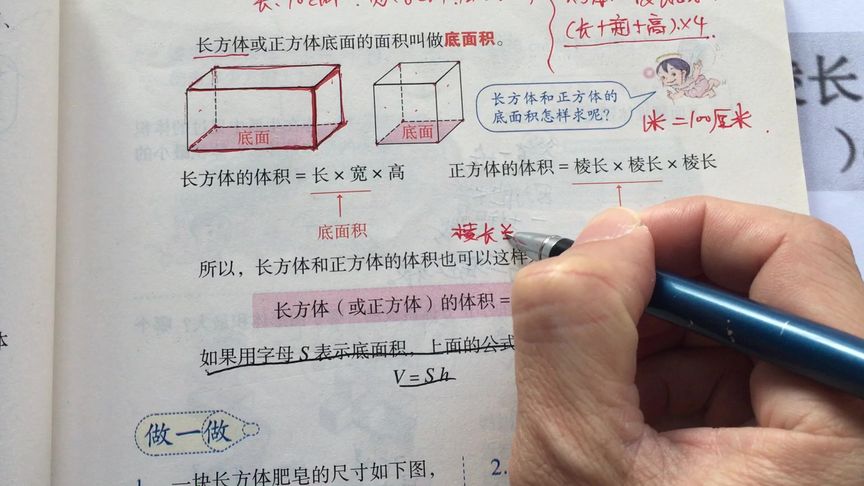 (长+宽+高)×4
长方体或正方体底面的面积叫做底面积。
底面
底面
长方体和正方体的
底面积怎样求呢?
1米=100厘米
长方体的体积=长×宽×高
正方体的体积=棱长×棱长×棱长
底面积
棱长
所以,长方体和正方体的体积也可以这样
长方体(或正方体)的体积=
如果用字母S表示底面积,上面的公式
V=Sh
做一做
一块长方体肥皂的尺寸如下图,
2.
长
)
体